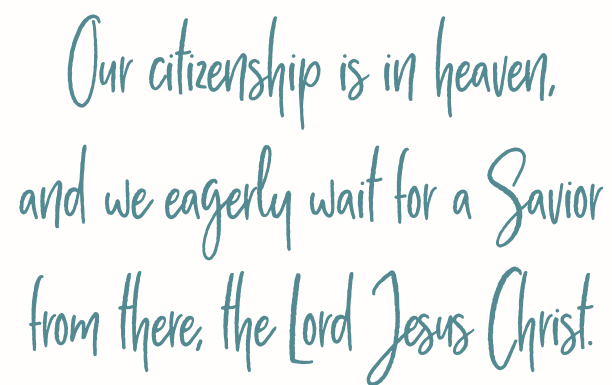 Our citizenship is in heaven,
and we eagerly wait for a Savior
from there, the Lord Jesus Christ.